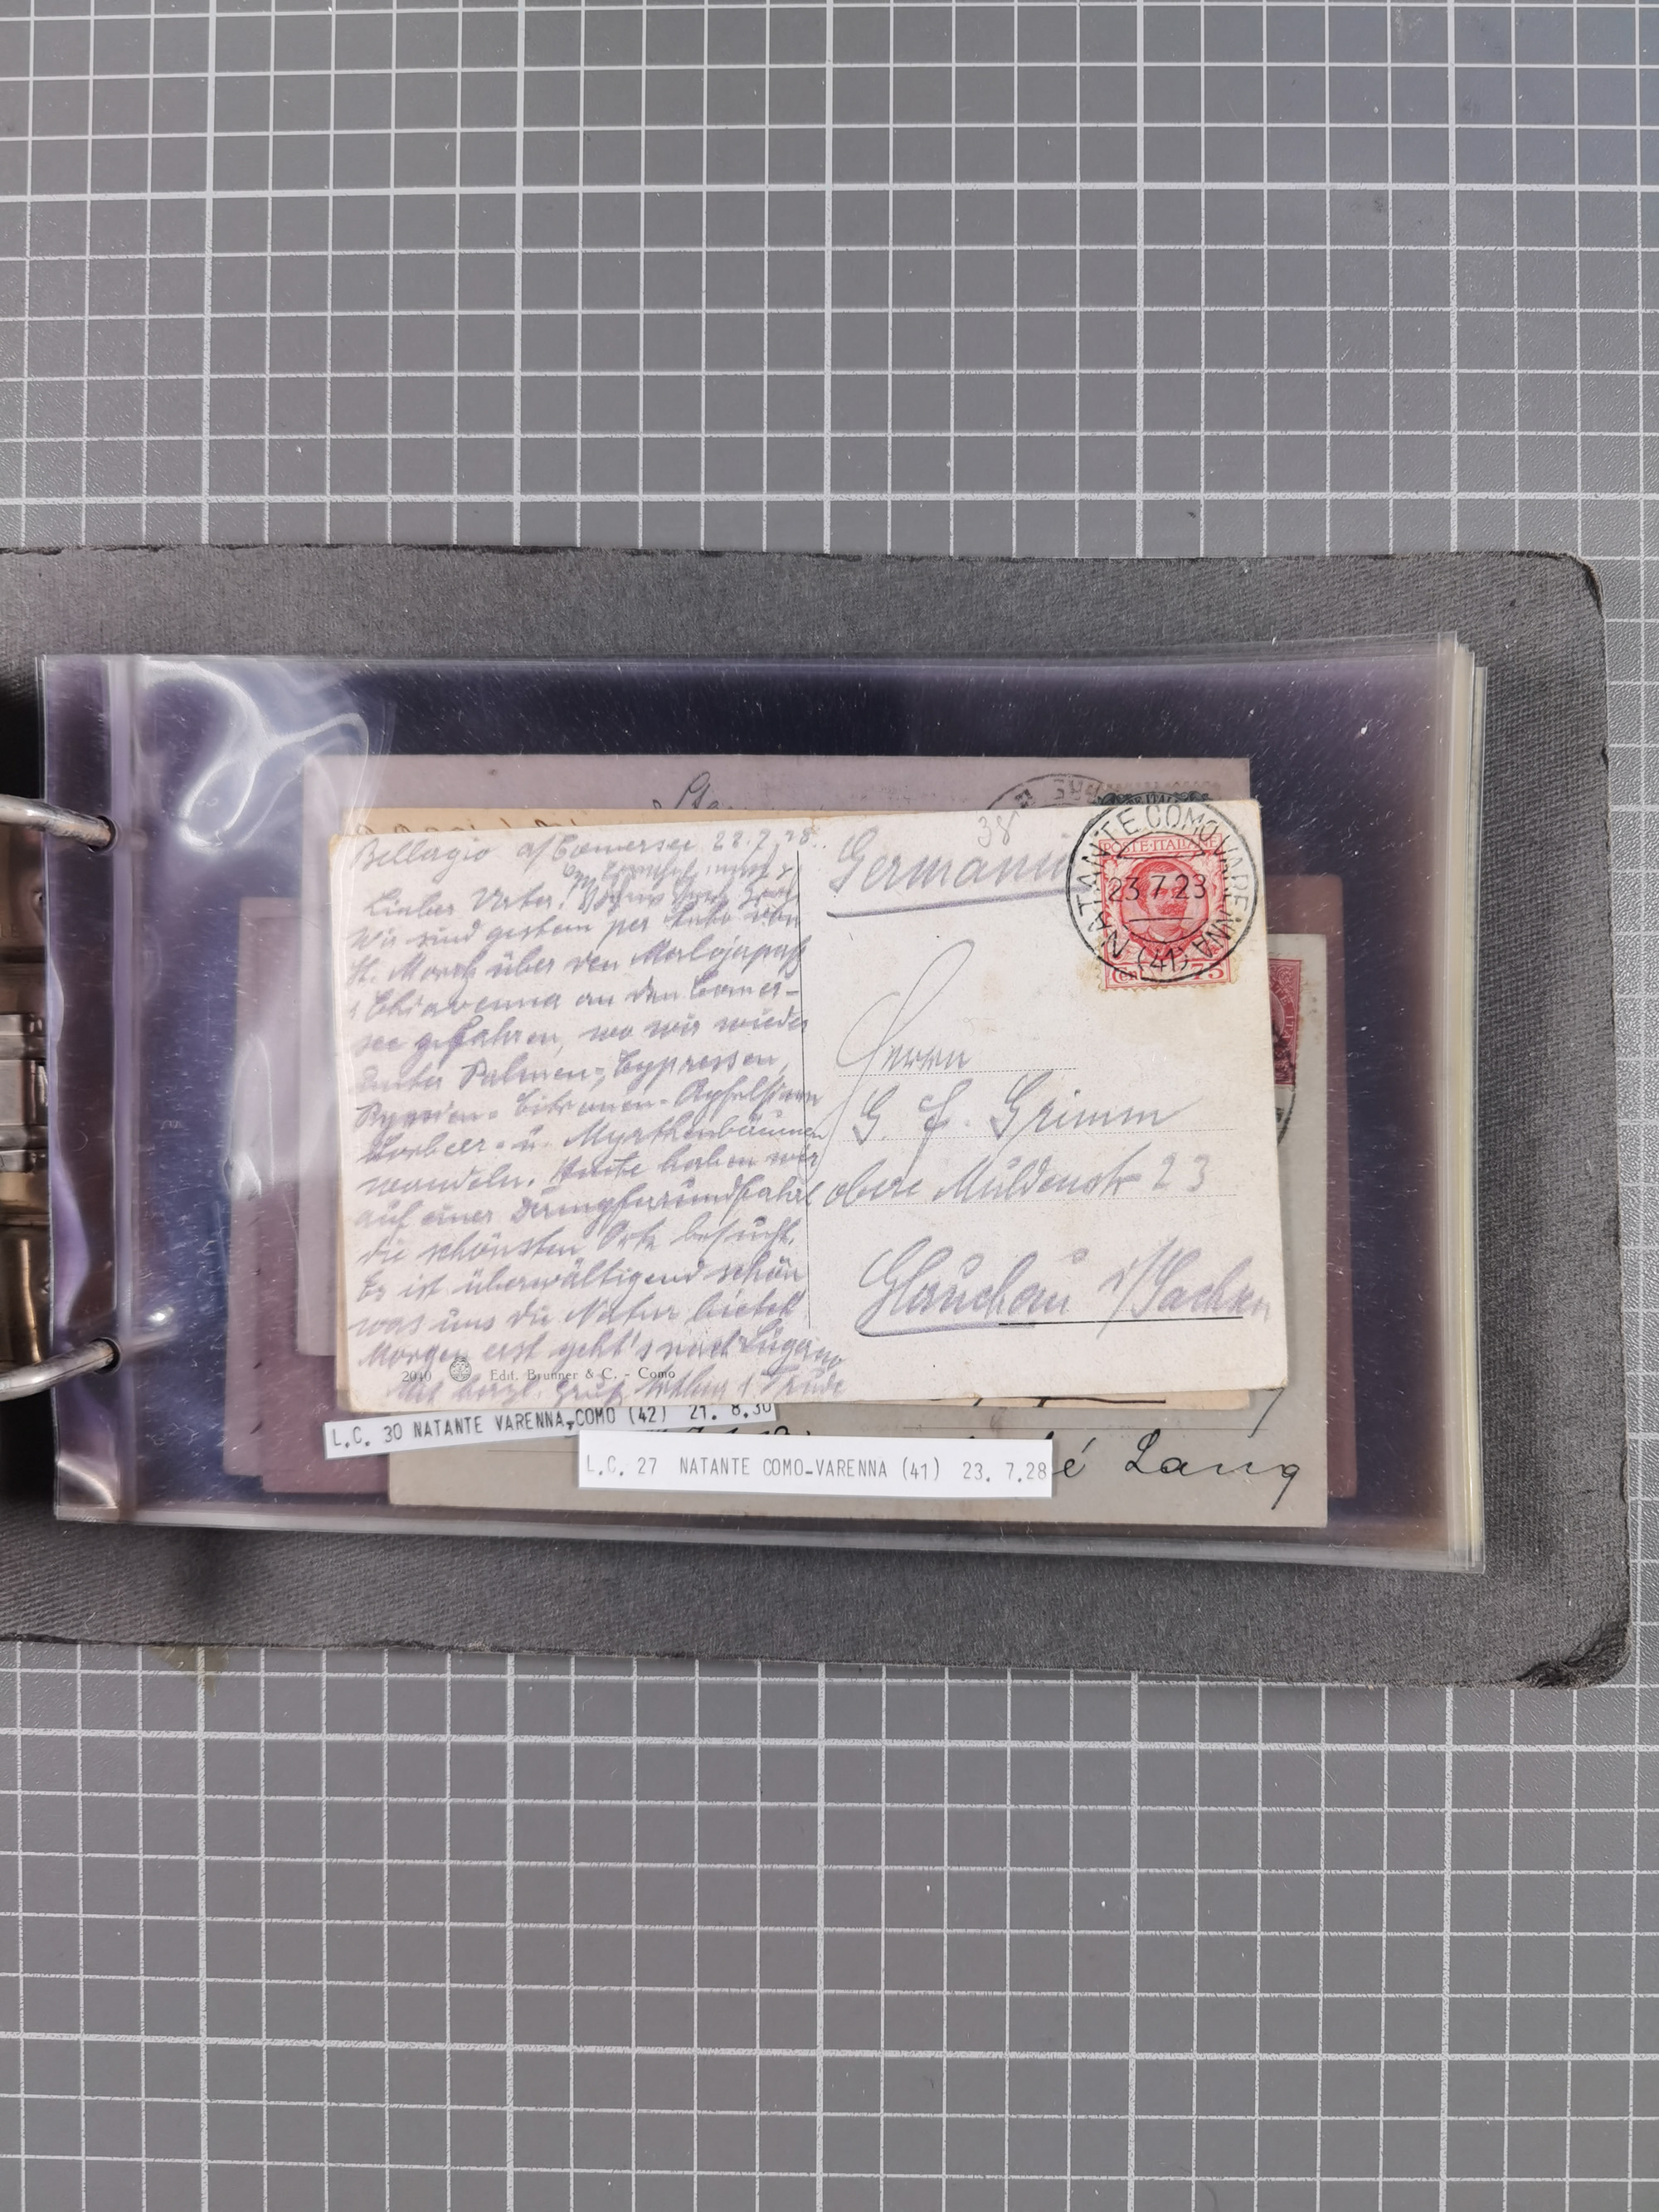 38
Bellagio a/Comersee 22.7.28.
Lieber Vater!
Wir sind gestern per Auto von
St. Moritz über den Malojapaß
Chiavenna an den Comer-
see gefahren, wo wir wieder
unter Palmen-, Cypressen,
Citronen- Apfelsinen
Lorbeer- u. Myrthenbäumen
wandeln. Heute haben wir
auf einer Dampferrundfahrt
die schönsten Orte besucht.
Es ist überwältigend schön
was uns die Natur bietet
Morgen erst geht's nach Lugano
Mit herzl. Gruß Trude
2040 Edit. Brunner & C. - Como
Germania
POSTE·ITALIANE
Cen 75
NATANTE COMO VARENNA
23 7 23
(41)
Herrn
G. F. Grimm
obere Muldenstr 23
Glauchau i/Sachsen
L.C. 30 NATANTE VARENNA-COMO (42) 21. 8.30
L.C. 27 NATANTE COMO-VARENNA (41) 23. 7.28
é Lang